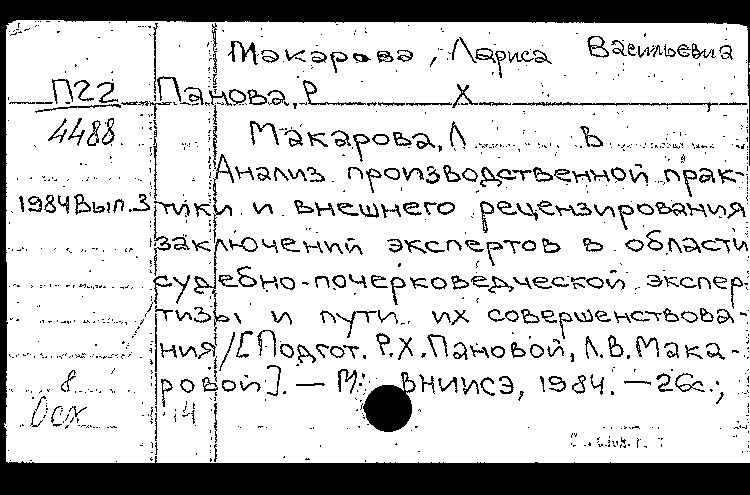 Макарова, Лариса Васильевна
П22 Панова, Р Х
4488 Макарова, Л В
Анализ производственной прак-
1984 Вып. 3 тики и внешнего рецензирования
заключений экспертов в области
судебно-почерковедческой экспер-
тизы и пути их совершенствова-
ния / [Подгот. Р.Х. Пановой, Л.В. Мака-
8 ровой]. — М: ВНИИСЭ, 1984. — 26с.;
Осх 14